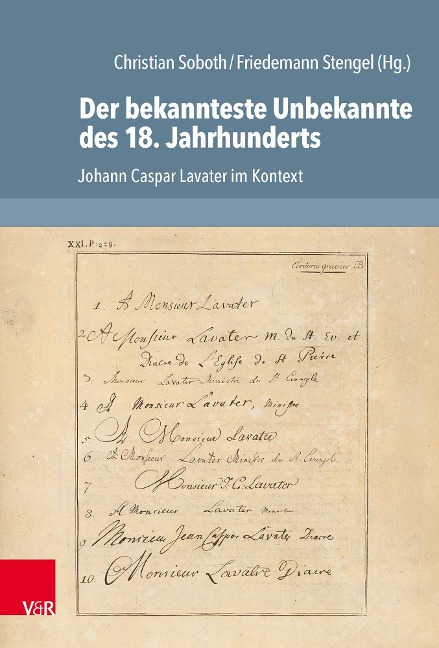 Christian Soboth/Friedemann Stengel (Hg.)
Der bekannteste Unbekannte
des 18. Jahrhunderts
Johann Caspar Lavater im Kontext
XXI. P. 229.
B.
1 A Monsieur Lavater
2 A Monsieur Lavater M. du St. Ev. et
Diacre de L'Eglise de St Pierre
3 Monsieur Lavater Ministre du St Evangile
4 A Monsieur Lavater, Ministre
5 A Monsieur Lavater
6 A Monsieur Lavater Ministre du St. Evangile
7 Monsieur J. C. Lavater
8 A Monsieur Lavater Ministre
9 Monsieur Jean Casper Lavater Diacre
10 Monsieur Lavatre Diacre
V&R